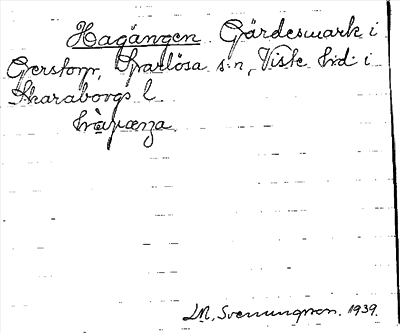 Hagängen Gärdesmark i
Gerstorp, Sparlösa s:n, Viste hd i
Skaraborgs l.
Svenningsson. 1939.